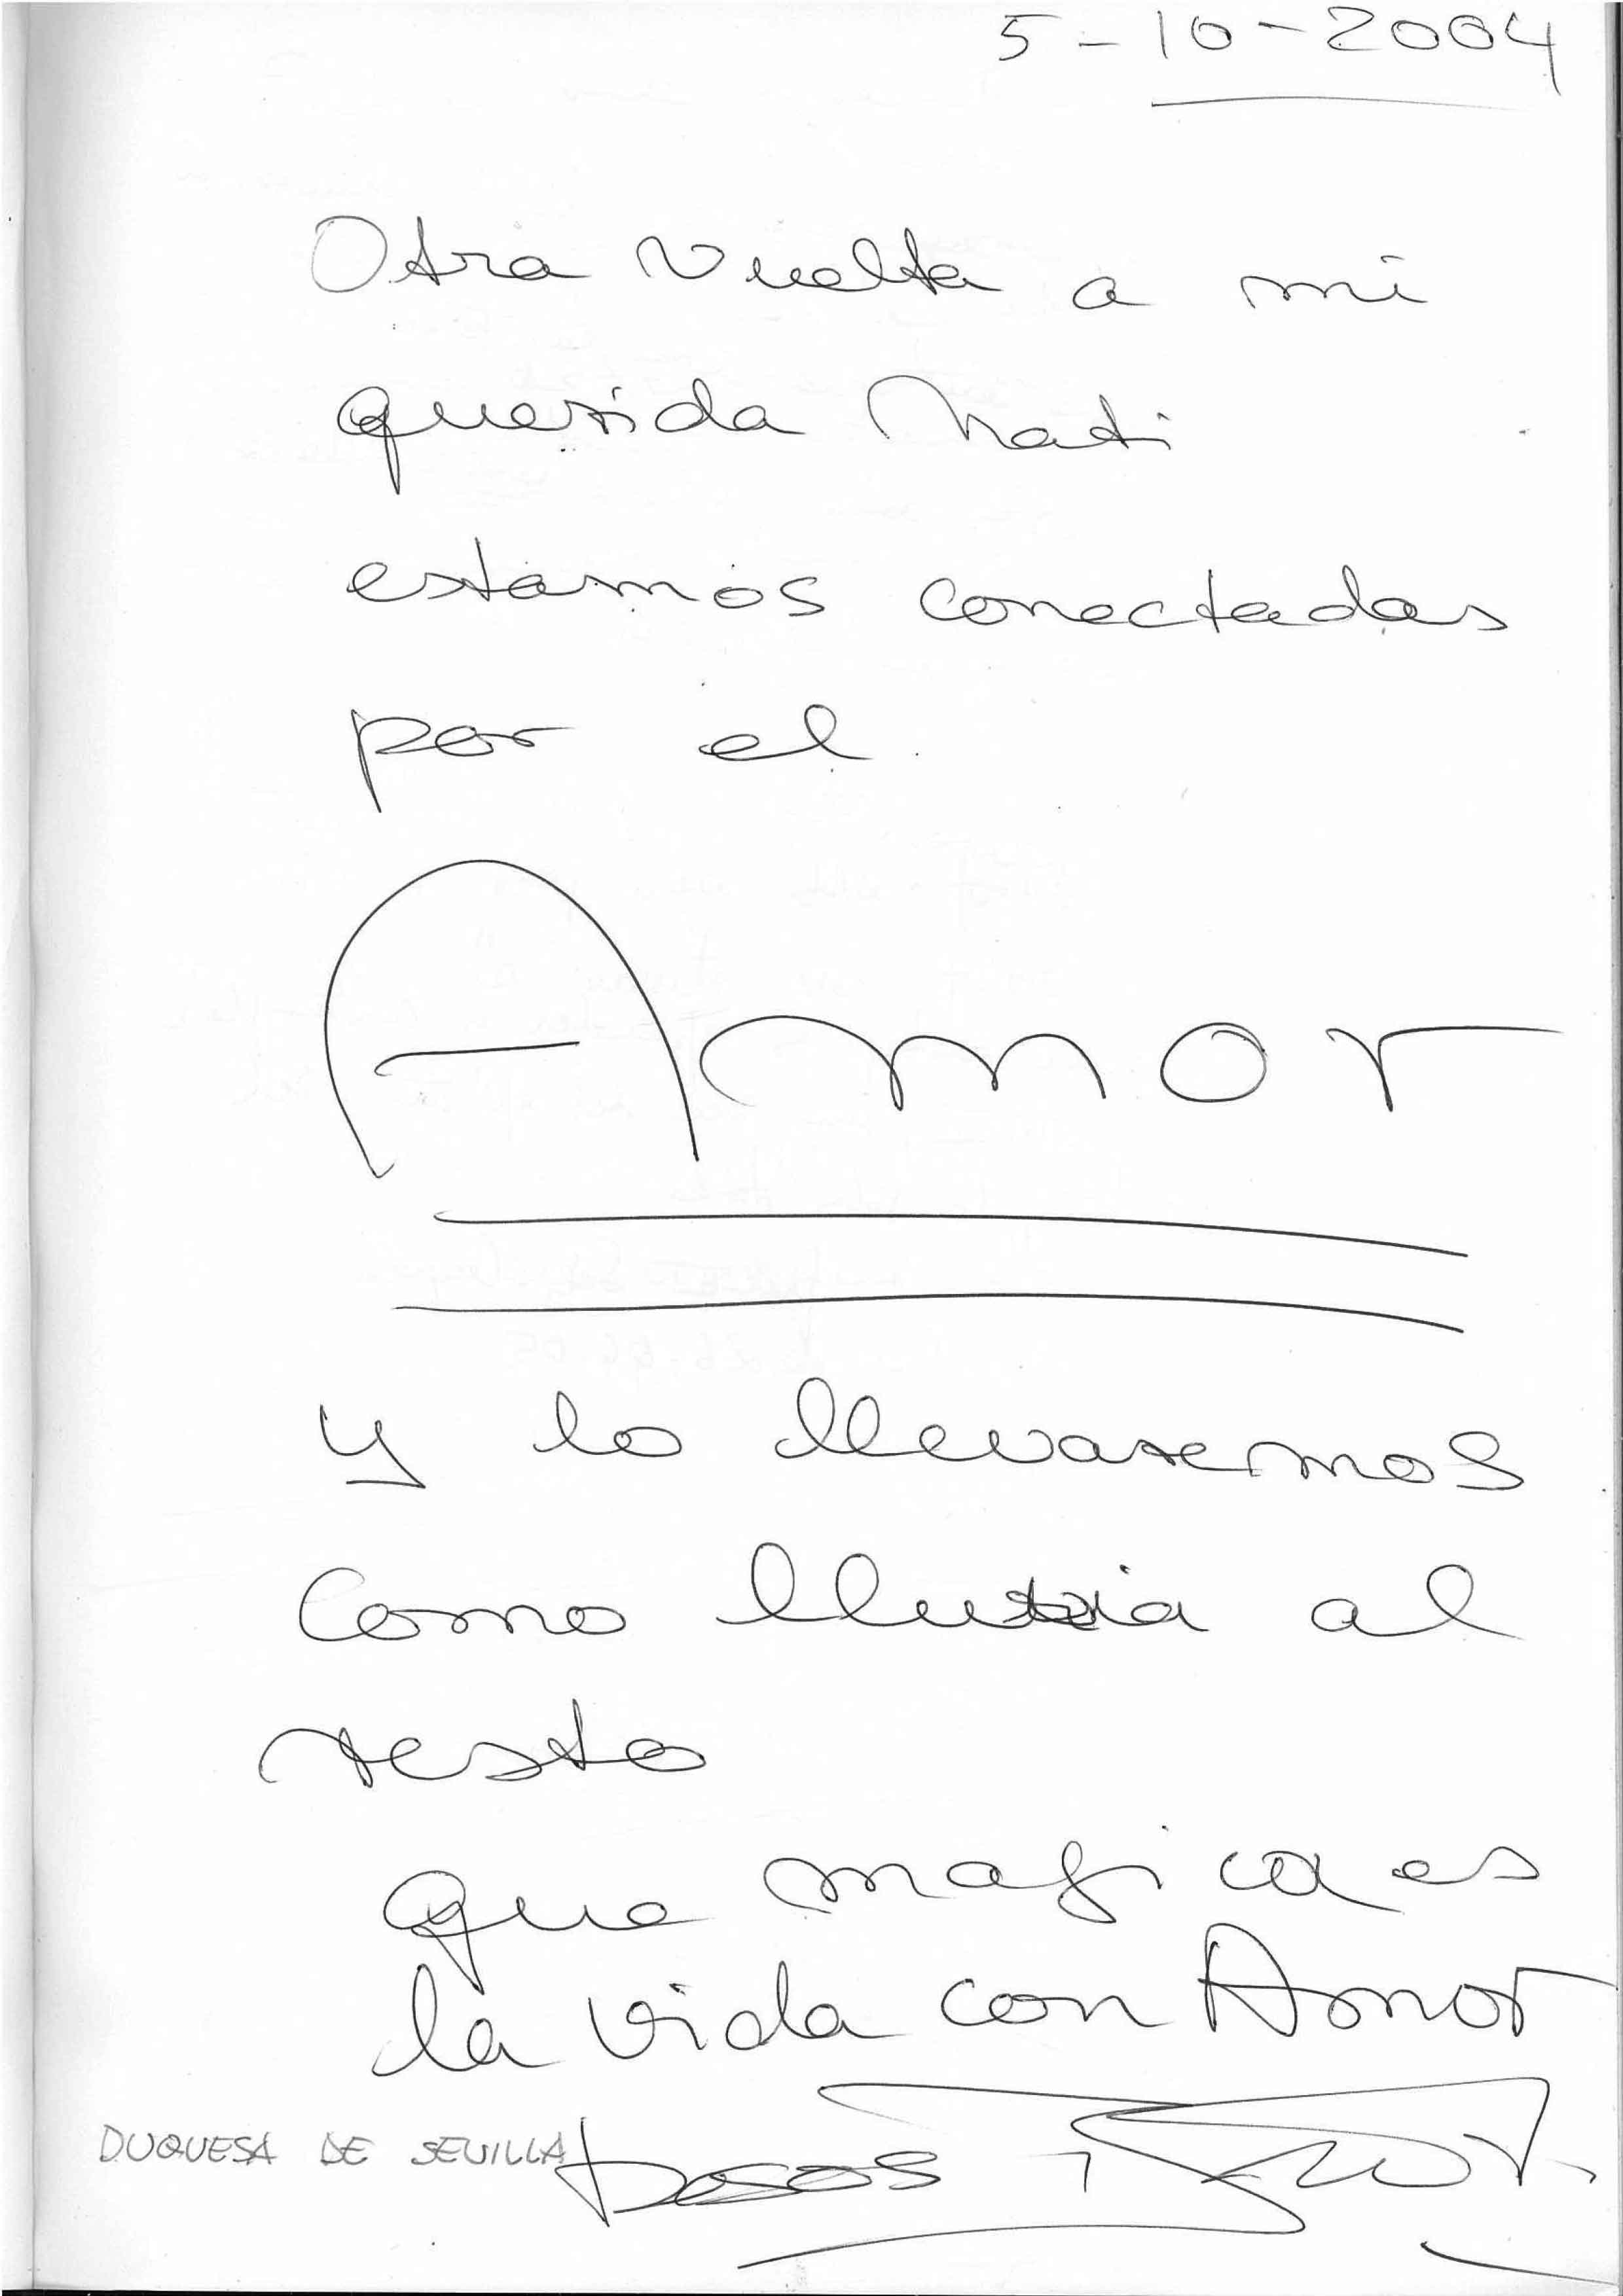 5-10-2004
Otra vuelta a mi
querida Nati
estamos conectadas
por el
Amor
y lo llevaremos
como lluvia al
resto
que magica es
la vida con Amor
DUQUESA DE SEVILLA